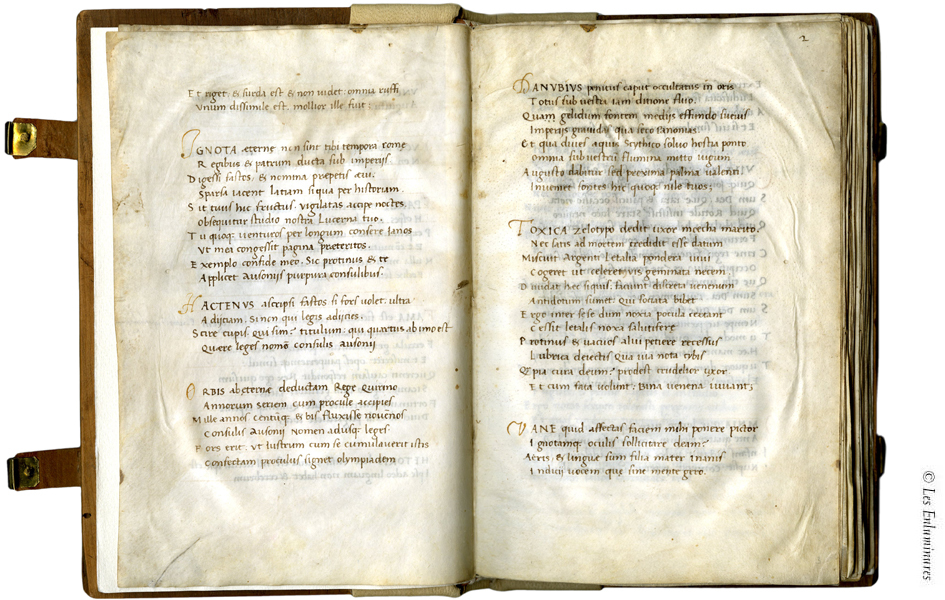 Et riget, & surda est & non uidet: omnia ruffi
Vnum dissimile est, mollior ille fuit:
IGNOTA æterne non sint tibi tempora rome
Regibus & patrum ducta sub imperijs
Digessi fastos, & nomina præpetis æui:
Sparsa iacent latiam siqua per historiam.
Sit tuus hic fructus. uigilatas accipe noctes.
Obsequitur studio nostra Lucerna tuo.
Tu quoq; uenturos per longum consere Ianos
Vt mea congessit pagina præteritos.
Exemplo confide meo. Sic protinus & te
Applicet Ausonijs purpura consulibus.
HACTENVS ascripsi fastos si fors uolet, ultra
Adijciam. Si non qui legis adijcies.
Scire cupis, qui sim? titulum: qui quartus ab imo est
Quære leges nomen consulis Ausonij
ORBIS ab æterne deductam Rege Quirino
Annorum seriem cum procule accipies
Mille annos centumq; & bis fluxisse nouenos
Consulis Ausonij Nomen adusq; leges
Fors erit, vt lustrum cum se cumulauerit istis
Confectam proculus signet olympiadem
2
DANVBIVS penitus caput occultatus in oris
Totus sub uestra iam ditione fluo.
Quam gelidum fontem medijs effundo sueuis
Imperijs grauida qua seco panonias
Et qua diues aquis Scythico soluo hostia ponto
Omnia sub uestrū flumina mitto iugum
Augusto dabitur sed proxima palma ualenti
Inueniet fontes hic quoq; nile tuos;
TOXICA zelotypo dedit uxor mœcha marito.
Nec satis ad mortem credidit esse datum
Miscuit Argenti letalia pondera uiui
Cogeret ut celerem uis geminata necem.
Diuidat hec siquis. faciunt discreta uenenum
Antidotum sumet: Qui sociata bibet
Ergo inter sese dum noxia pocula certant
Cessit letalis noxa salutiferæ
Protinus & uacuos alui petiere recessus
Lubrica deiectis Qua uia nota cybis
Q pia cura deum? prodest crudelior uxor
Et cum fata uolunt: Bina uenena iuuant;
VANE quid affectas faciem mihi ponere pictor
Ignotamq; oculis sollicitare deam?
Aeris, & linguæ sum filia mater inanis
Indicij uocem que sine mente gero.
© Les Enluminures